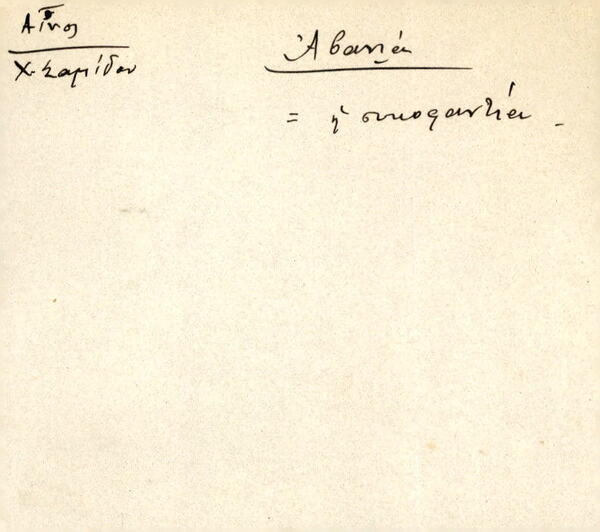 Αἶνος
Χ. Σαμίδου
Ἀβανιά
= ἡ συκοφαντία.